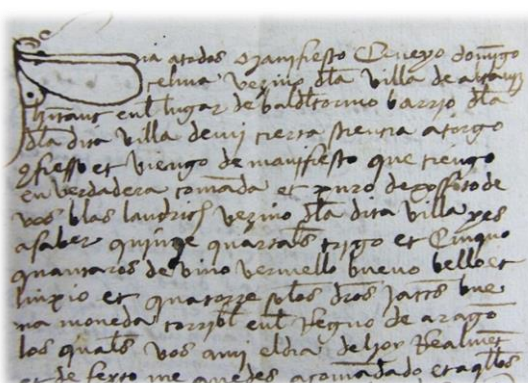 Sia a todos manifiesto Que yo domingo
vezino dla villa de
habitant enl lugar de baldtormo barrio dla
dla dita villa de mi cierta sciencia atorgo
9fiesso et viengo de manifiesto que tiengo
en verdadera comāda et puro deposito de
vos blas vezino dla dita villa yes
asaber quinze quartals trigo et Cinquo
quantaros de vino vermello bueno bello et
limpio et quatorze solos dros Jaccs bue
na moneda corribl enl Regno de aragō
los quals vos ami el dia de hoy Realmēt
et de fecto me auedes acomādado et aqllos